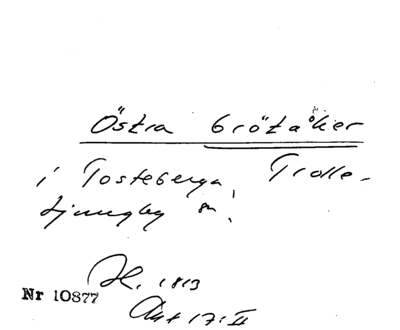 Östra brötåker
i Tosteberga, Trolle-
Ljungby sn.
H. 1813
Nr 10877
Akt 17: II